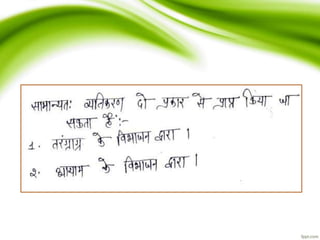 सामान्यतः व्यतिकरण दो प्रकार से प्राप्त किया जा
सकता है:-
1. तरंगाग्र के विभाजन द्वारा ।
२. आयाम के विभाजन द्वारा ।
fppt.com